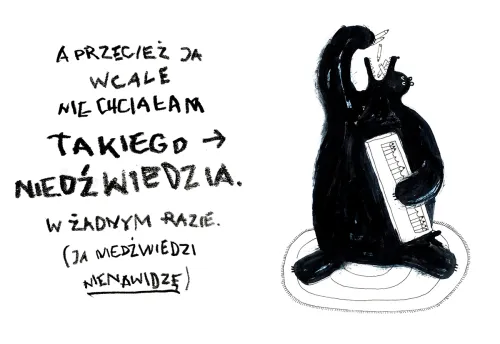 A PRZECIEŻ JA
WCALE
NIE CHCIAŁAM
TAKIEGO →
NIEDŹWIEDZIA.
W ŻADNYM RAZIE.
(JA NIEDŹWIEDZI
NIENAWIDZĘ)